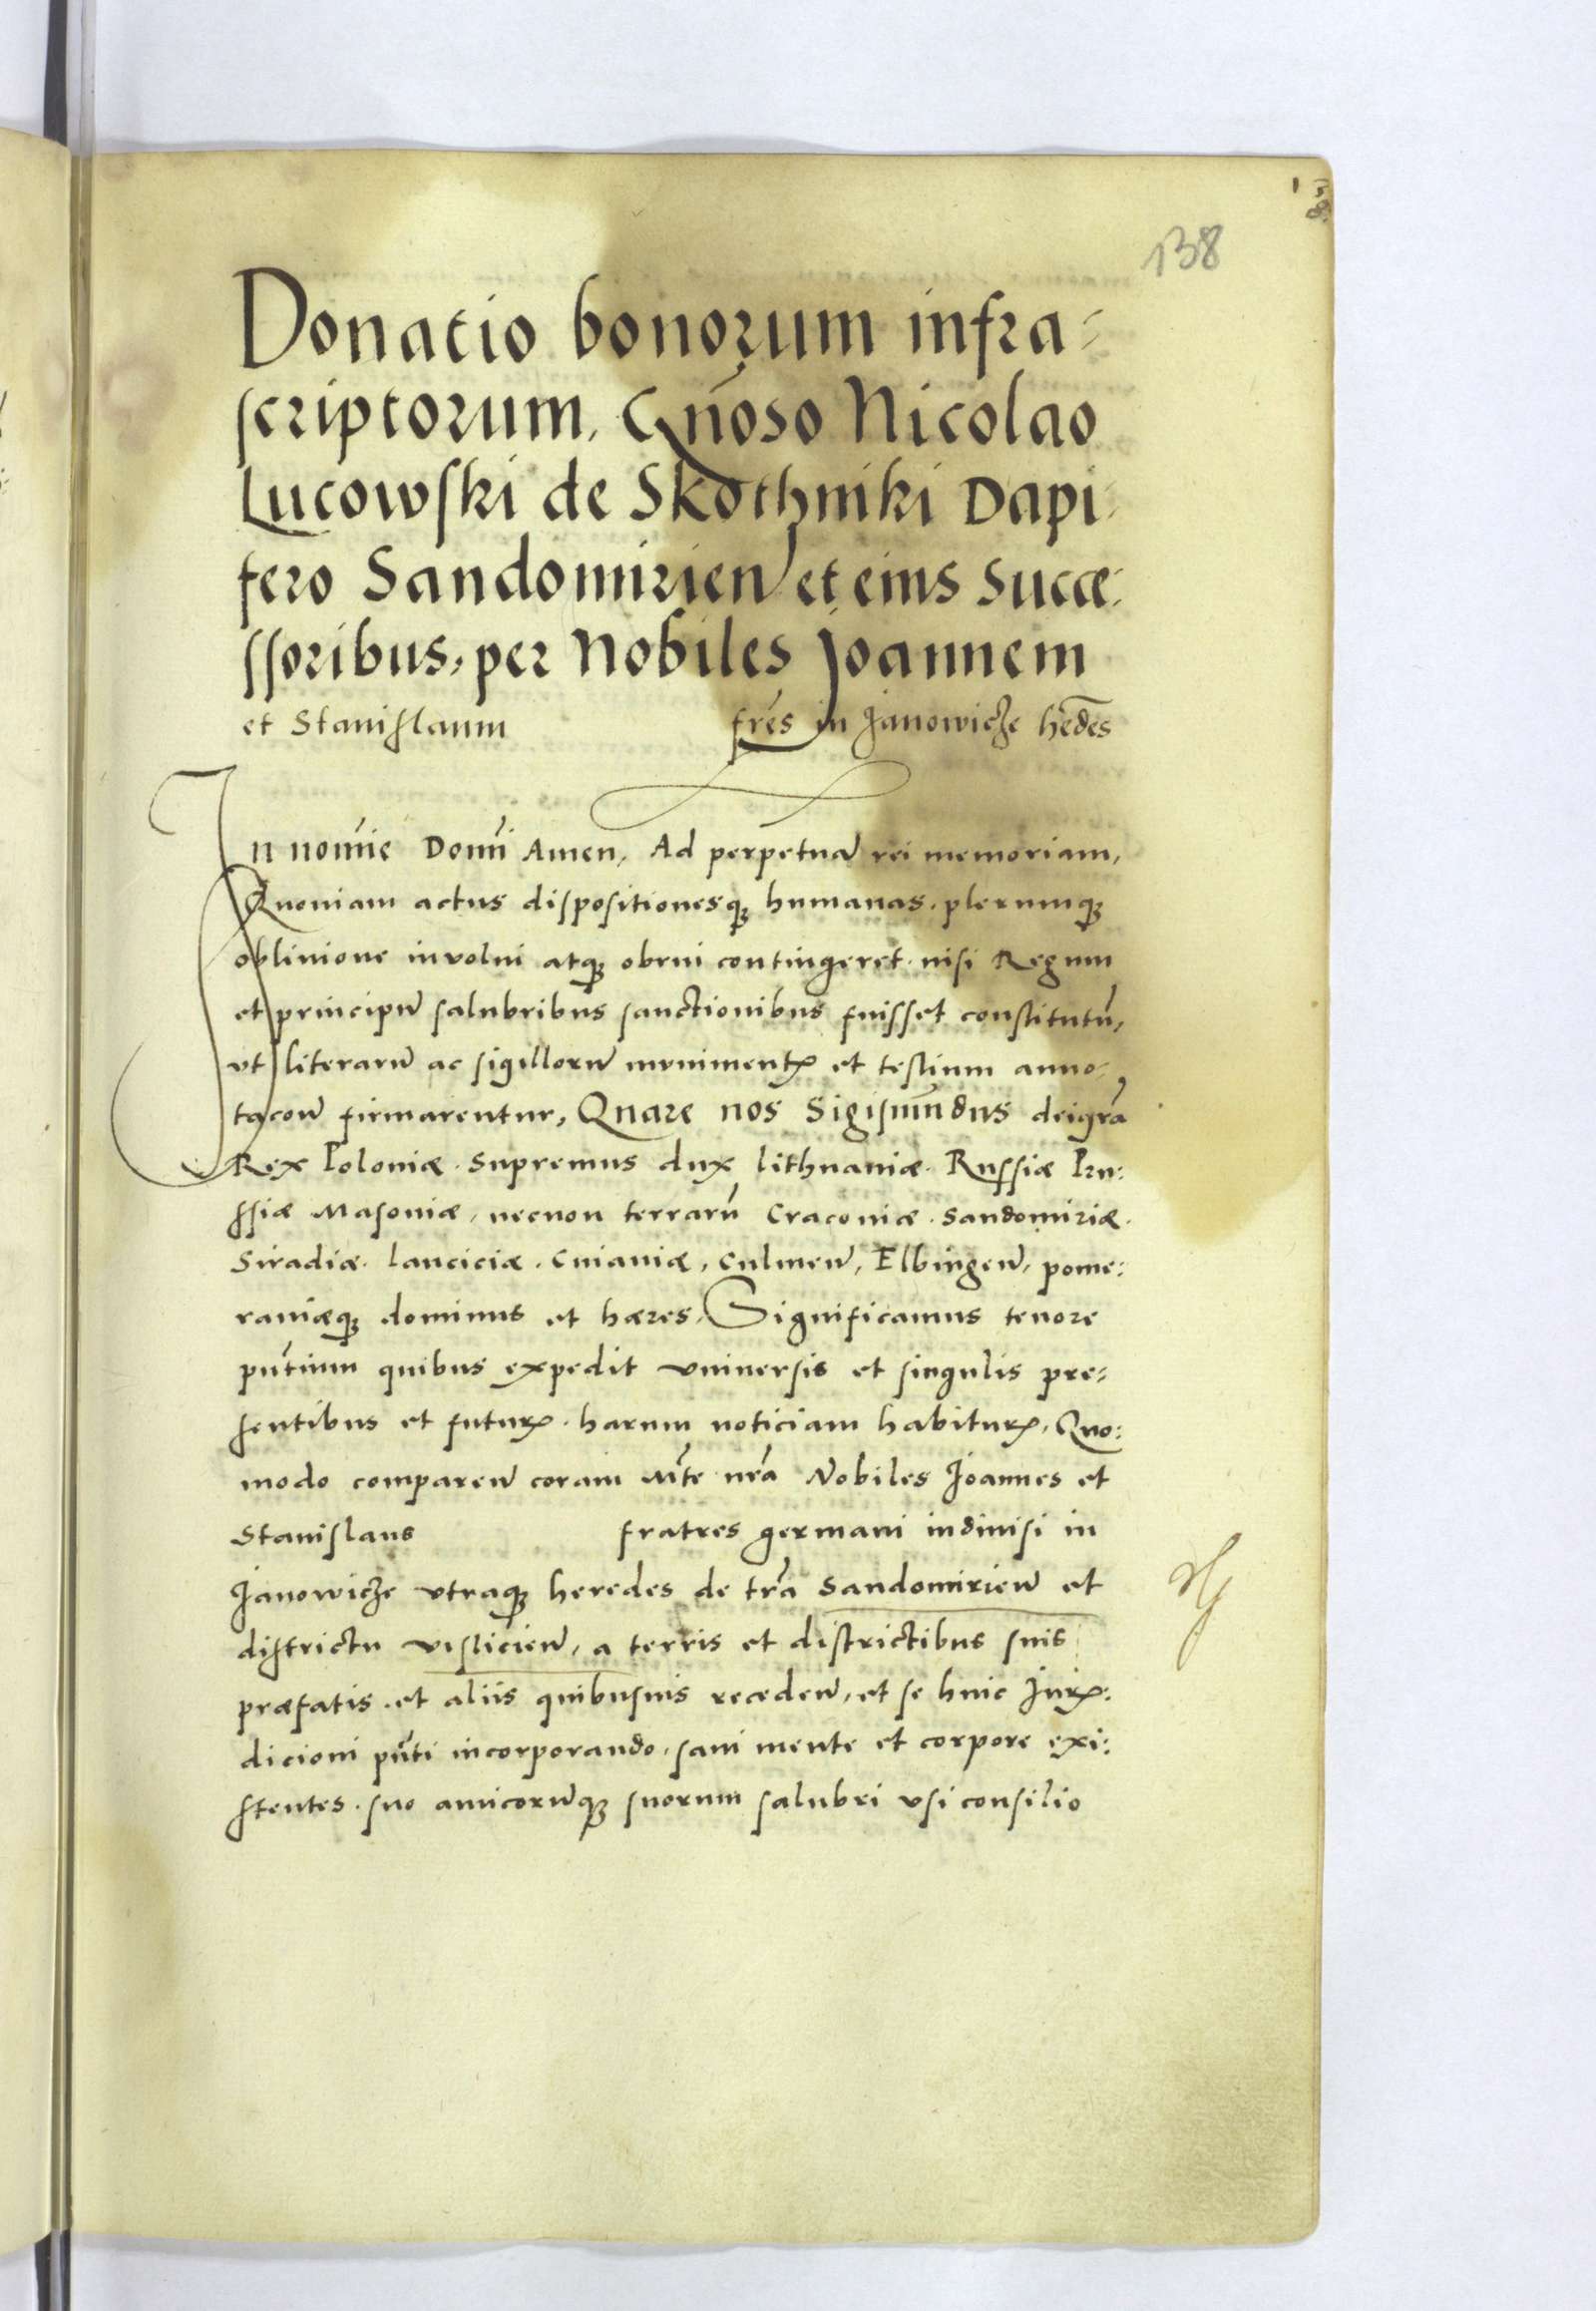 138
138
Donatio bonorum infra-
scriptorum, Gnōso Nicolao
Lucowski de Skothniki Dapi-
fero Sandomirien et eius Succe-
ssoribus, per Nobiles Joannem
et Stanislaum frēs in Janowicze hēdes
In nomīe Domī Amen, Ad perpetuā rei memoriam,
Quoniam actus dispositionesqꝫ humanas, plerumqꝫ
obliuione inuolui atqꝫ obrui contingeret, nisi Regum
et principū salubribus sanctionibus fuisset constitutū,
vt literarū ac sigillorū munimentꝭ et testium anno-
tacōn firmarentur, Quare nos Sigismūdus dei grā
Rex Poloniæ, Supremus dux lithuaniæ, Russiæ Pru:
ssiæ Masoniæ, necnon terrarū Cracouiæ, Sandomiriæ,
Siradiæ, lanciciæ, Cuiauiæ, Culmen, Elbingen, pome:
raniæqꝫ dominus et hæres, Significamus tenore
pn̄tium quibus expedit vniuersis et singulis pre-
sentibus et futurꝭ, harum noticiam habiturꝭ, Quo:
modo comparen coram Mte nrā Nobiles Joannes et
Stanislaus fratres germani indiuisi in
Janowicze vtraqꝫ heredes de trā Sandomirien et
districtu vislicien, a terris et districtibus suis
præfatis, et aliis quibusuis receden, et se huic Jurꝭ:
dicioni pn̄ti incorporando, sani mente et corpore exi:
stentes, suo amicorūqꝫ suorum salubri vsi consilio